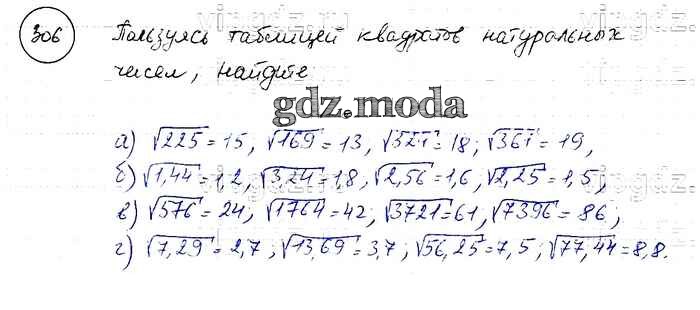 306 Пользуясь таблицей квадратов натуральных
чисел, найдите
gdz.moda
а) √225 = 15, √169 = 13, √324 = 18; √361 = 19,
б) √1,44 = 1,2, √3,24 = 1,8, √2,56 = 1,6, √2,25 = 1,5,
в) √576 = 24, √1764 = 42, √3721 = 61, √7396 = 86;
г) √7,29 = 2,7, √13,69 = 3,7; √56,25 = 7,5; √77,44 = 8,8.